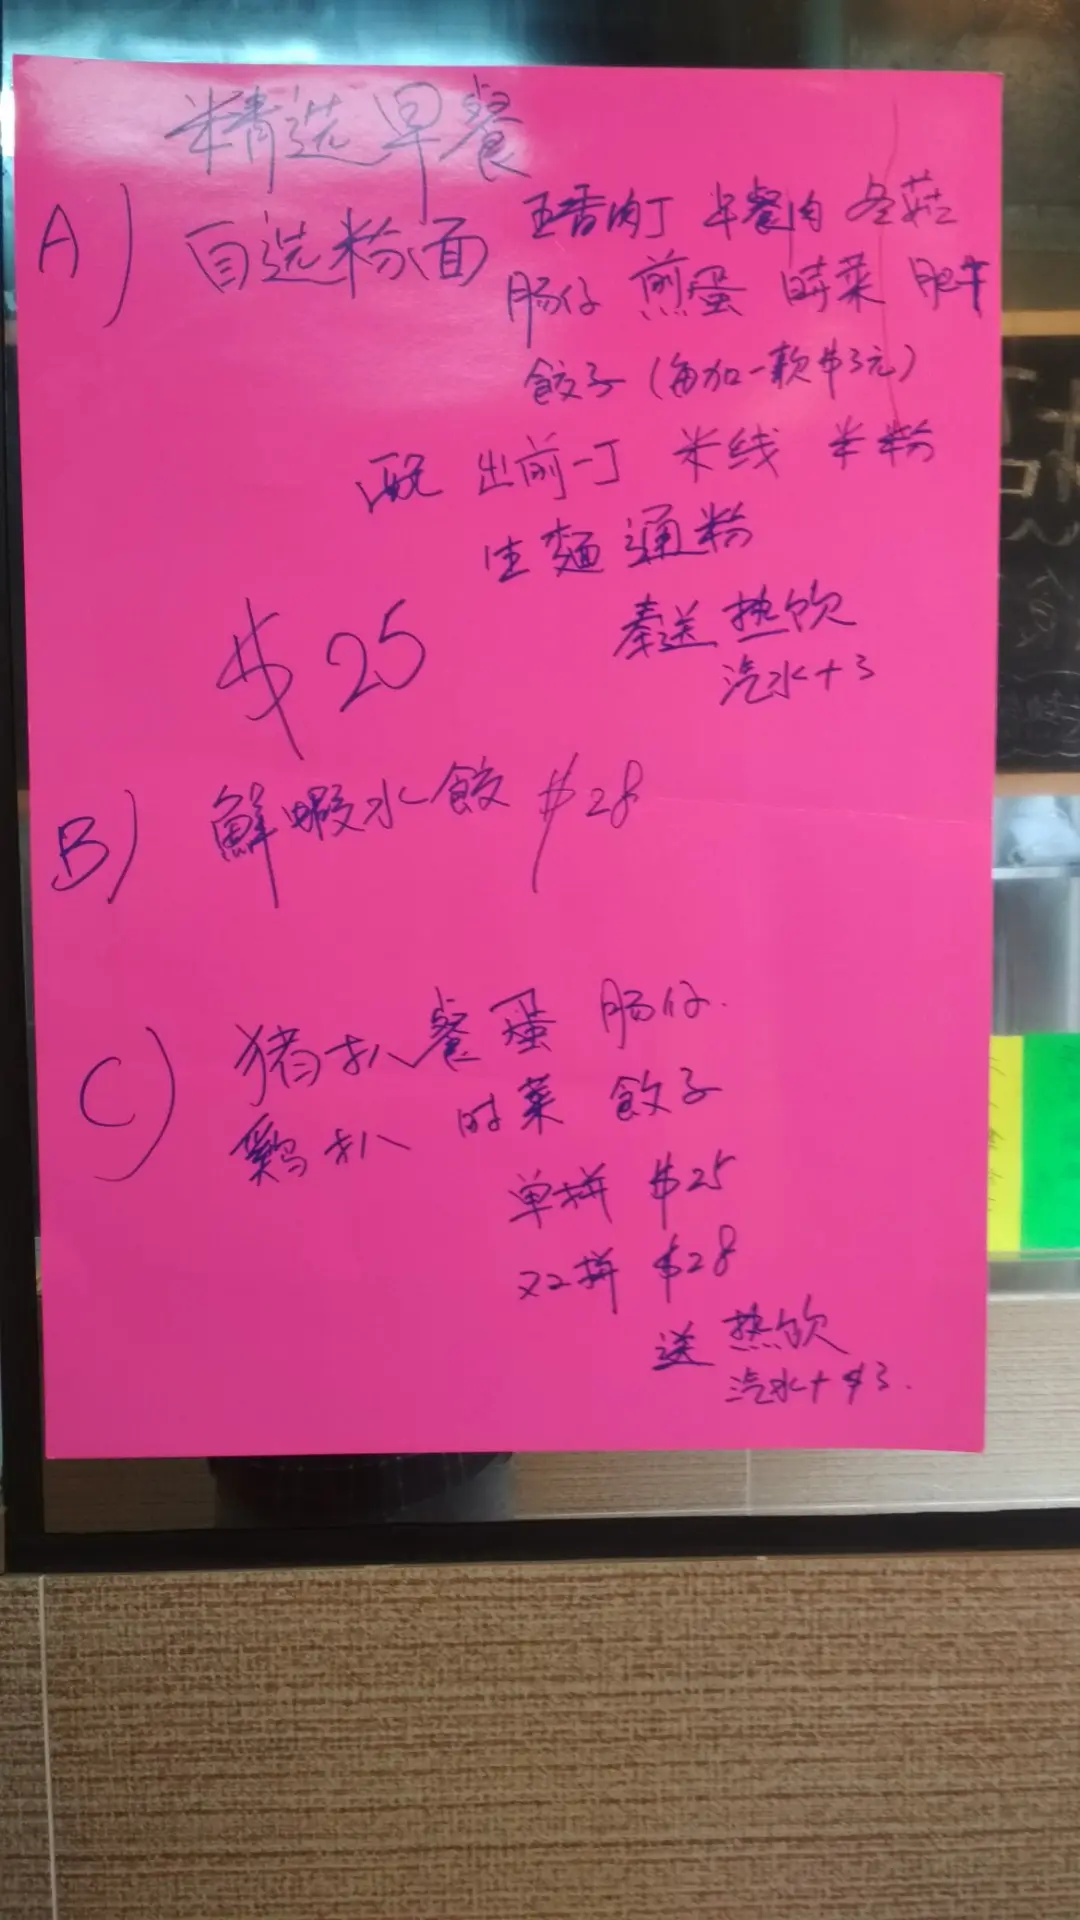 精选早餐
A) 自选粉面 五香肉丁 早餐肉 冬菇
肠仔 煎蛋 時菜 肥牛
餃子(每加一款$3元)
配 出前一丁 米线 米粉
生麵 通粉
$25
奉送 热饮
汽水+3
B) 鮮蝦水餃 $28
C) 猪扒 餐蛋 肠仔
鷄扒 时菜 餃子
单拼 $25
双拼 $28
送 热饮
汽水+$3.